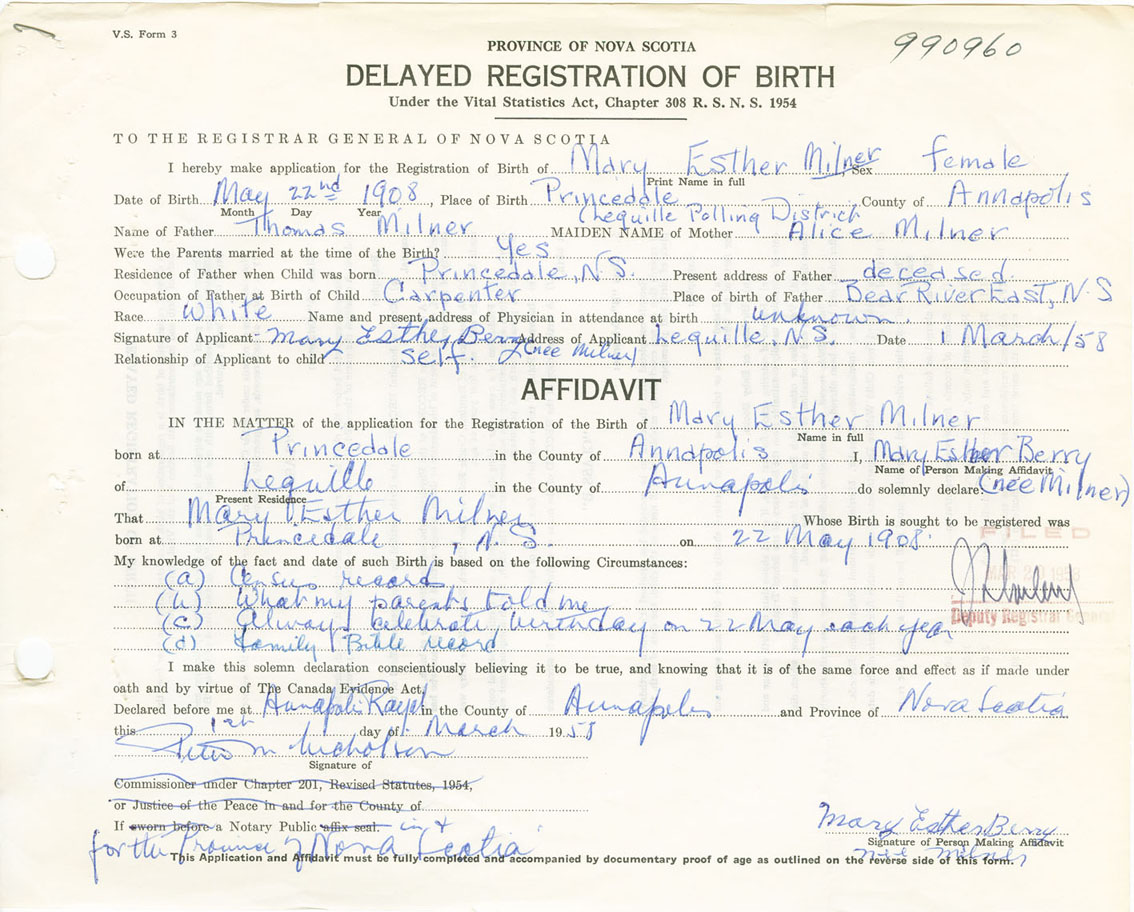 V.S. Form 3
990960
PROVINCE OF NOVA SCOTIA
DELAYED REGISTRATION OF BIRTH
Under the Vital Statistics Act, Chapter 308 R. S. N. S. 1954
TO THE REGISTRAR GENERAL OF NOVA SCOTIA
I hereby make application for the Registration of Birth of Mary Esther Milner Sex female
Print Name in full
Date of Birth May 22nd 1908, Place of Birth Princedale County of Annapolis
Month Day Year (Lequille Polling District
Name of Father Thomas Milner MAIDEN NAME of Mother Alice Milner
Were the Parents married at the time of the Birth? Yes
Residence of Father when Child was born Princedale, N.S. Present address of Father deceased
Occupation of Father at Birth of Child Carpenter Place of birth of Father Bear River East, N.S
Race White Name and present address of Physician in attendance at birth unknown.
Signature of Applicant Mary Esther Berry Address of Applicant Lequille, N.S. Date 1 March/58
Relationship of Applicant to child self. (nee Milner)
AFFIDAVIT
IN THE MATTER of the application for the Registration of the Birth of Mary Esther Milner
Name in full
born at Princedale in the County of Annapolis I, Mary Esther Berry
Name of Person Making Affidavit
of Lequille in the County of Annapolis do solemnly declare: (née Milner)
Present Residence
That Mary Esther Milner Whose Birth is sought to be registered was
born at Princedale, N.S. on 22 May 1908.
FILED
My knowledge of the fact and date of such Birth is based on the following Circumstances:
(a) Census record
(b) What my parents told me
(c) Always celebrate birthday on 22 May each year
Deputy Registrar General
(d) Family Bible record
I make this solemn declaration conscientiously believing it to be true, and knowing that it is of the same force and effect as if made under
oath and by virtue of The Canada Evidence Act.
Declared before me at Annapolis Royal in the County of Annapolis and Province of Nova Scotia
this 1st day of March 1958
Peter M Nicholson
Signature of
Commissioner under Chapter 201, Revised Statutes, 1954,
or Justice of the Peace in and for the County of
If sworn before a Notary Public affix seal. in &
for the Province of Nova Scotia
Mary Esther Berry
Signature of Person Making Affidavit
nee Milner
This Application and Affidavit must be fully completed and accompanied by documentary proof of age as outlined on the reverse side of this form.